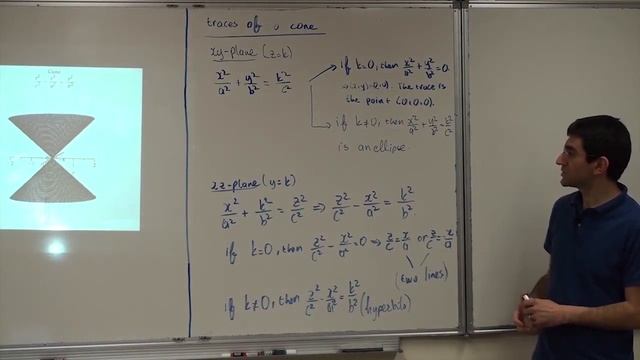 Cone
traces of a cone
xy-plane (z=k)
x²/a² + y²/b² = k²/c²
if k=0, then x²/a² + y²/b² = 0
⇒ (x,y)=(0,0). The trace is
the point (0,0,0).
if k≠0, then x²/a² + y²/b² = k²/c²
is an ellipse.
xz-plane (y=k)
x²/a² + k²/b² = z²/c² ⇒ z²/c² - x²/a² = k²/b²
if k=0, then z²/c² - x²/a² = 0 ⇒ z/c = x/a or z/c = x/a
(two lines)
if k≠0, then z²/c² - x²/a² = k²/b² (hyperbola)